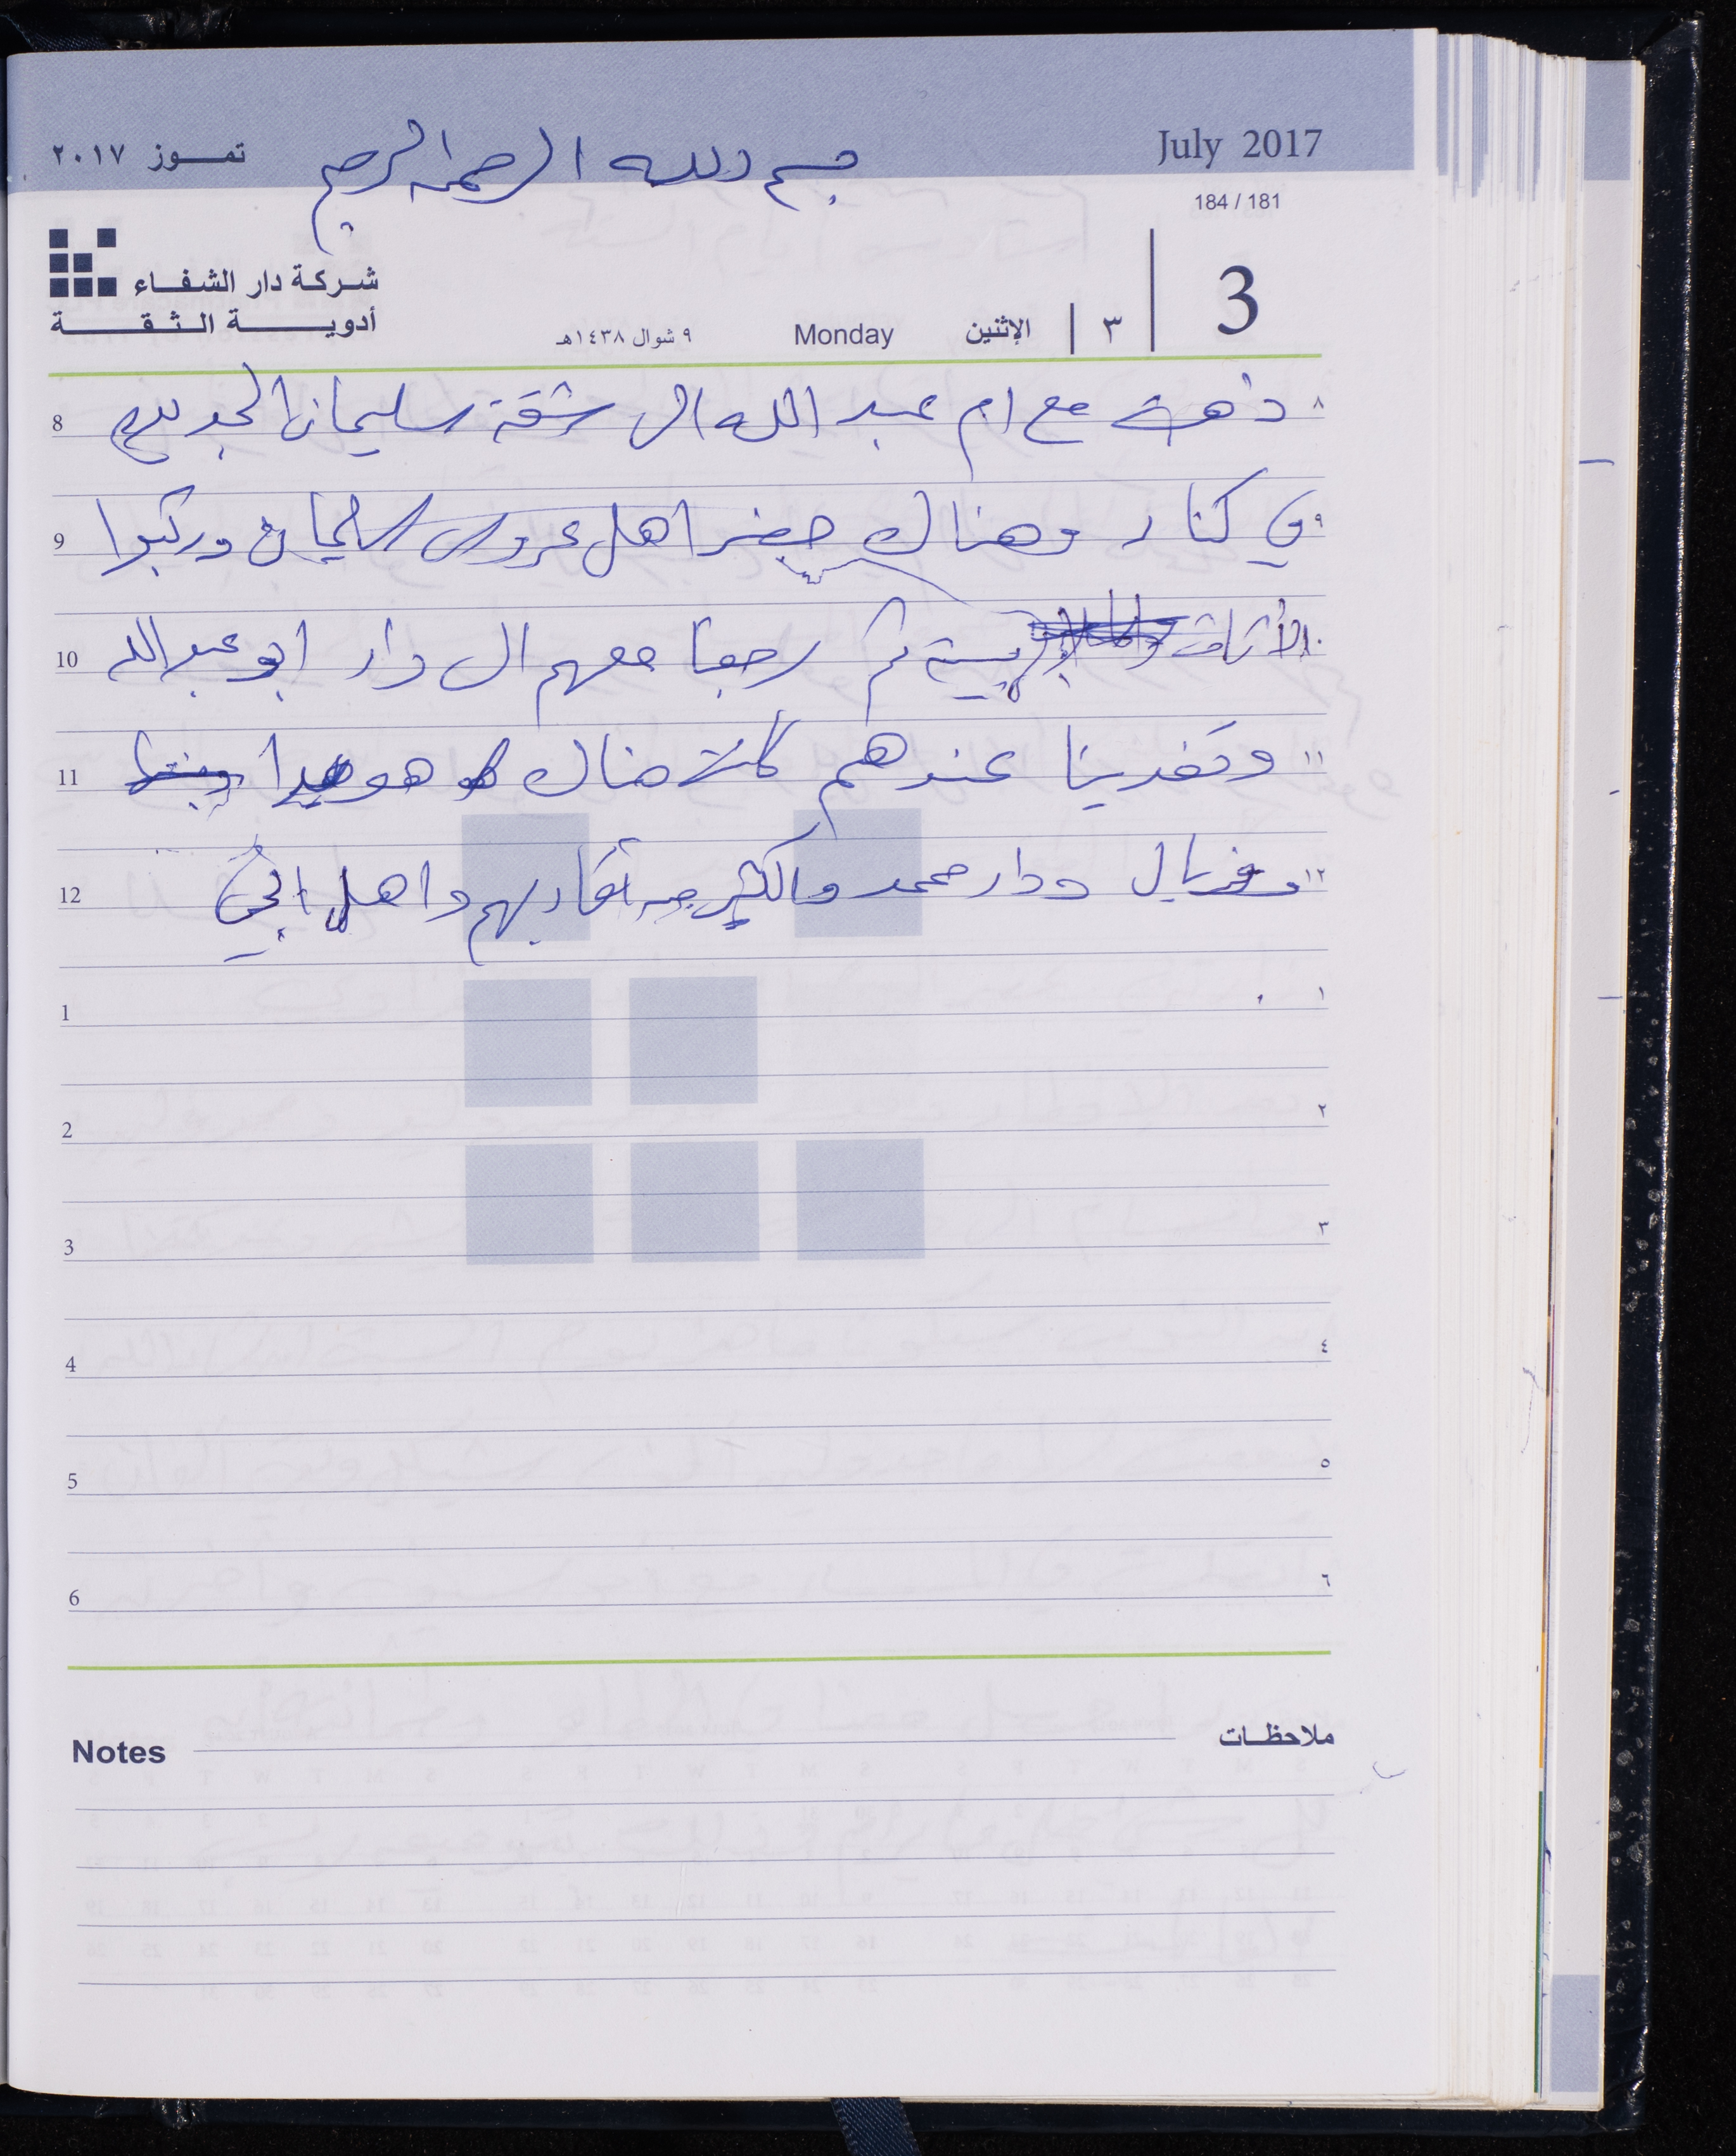 July 2017
بسم الله الرحمن الرحيم
تمـــوز ٢٠١٧
184 / 181
3
٣
الإثنين
Monday
٩ شوال ١٤٣٨هـ
شـركـة دار الشفــاء
أدويـــــــة الـثـقـــــــة
٨ ذهبت مع ام عبد الله الى شقة سليمان الجديدة 8
٩ في كنار وهناك حضر اهل عروس سليمان وركبوا 9
١٠ الأثاث ثم رجعنا معهم الى دار ابو عبد الله 10
١١ وتغدينا عندهم كان هناك هويدا 11
١٢ وفريال ودار محمد والكثير من أقاربهم واهل الحي 12
١ 1
٢ 2
٣ 3
٤ 4
٥ 5
٦ 6
ملاحظـات
Notes